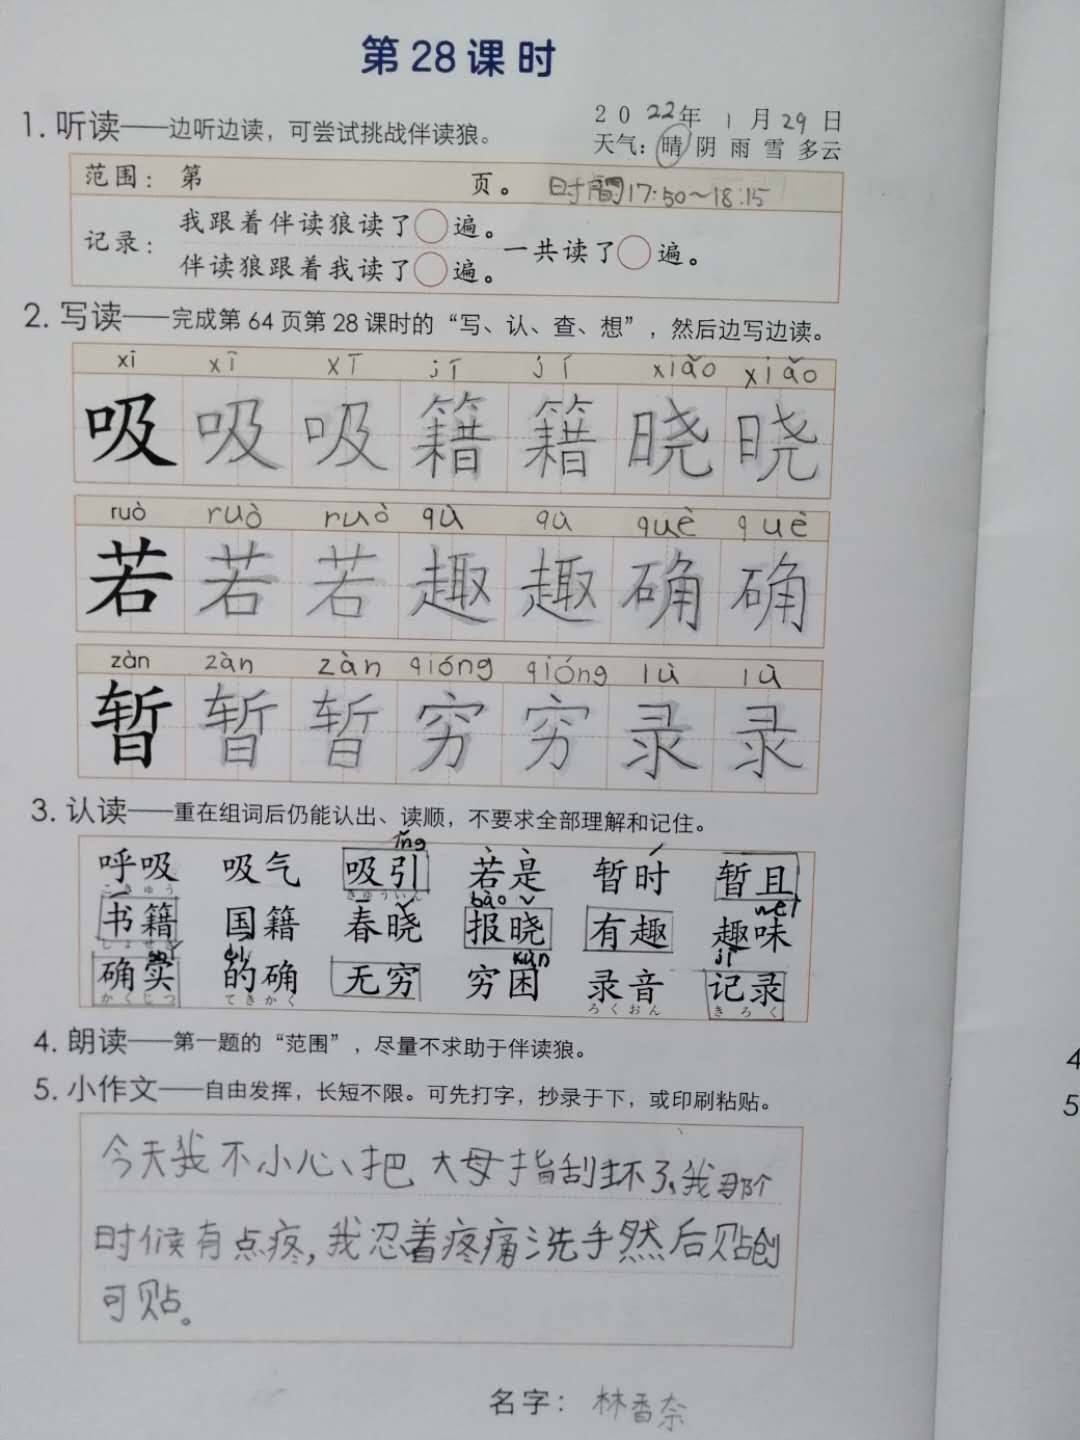 第28课时
1. 听读——边听边读，可尝试挑战伴读狼。
2022年 1月29日
天气：晴 阴 雨 雪 多云
范围：第 页。 时間17:50～18:15
记录：
我跟着伴读狼读了 遍。
伴读狼跟着我读了 遍。
一共读了 遍。
2. 写读——完成第64页第28课时的“写、认、查、想”，然后边写边读。
xī xī xī jí jí xiǎo xiǎo
吸 吸 吸 籍 籍 晓 晓
ruò ruò ruò qù qù què què
若 若 若 趣 趣 确 确
zàn zàn zàn qióng qióng lù lù
暂 暂 暂 穷 穷 录 录
3. 认读——重在组词后仍能认出、读顺，不要求全部理解和记住。
ǐng
呼吸 吸气 吸引 若是 暂时 暂且
こきゅう きゅういん
bào
书籍 国籍 春晓 报晓 有趣 趣味
しょせき
wèi
kùn
jì
确实 的确 无穷 穷困 录音 记录
かくじつ てきかく ろくおん きろく
4. 朗读——第一题的“范围”，尽量不求助于伴读狼。
5. 小作文——自由发挥，长短不限。可先打字，抄录于下，或印刷粘贴。
今天我不小心、把大母指刮坏了、我那个
时候有点疼，我忍着疼痛洗手然后贴创
可贴。
名字：林香奈